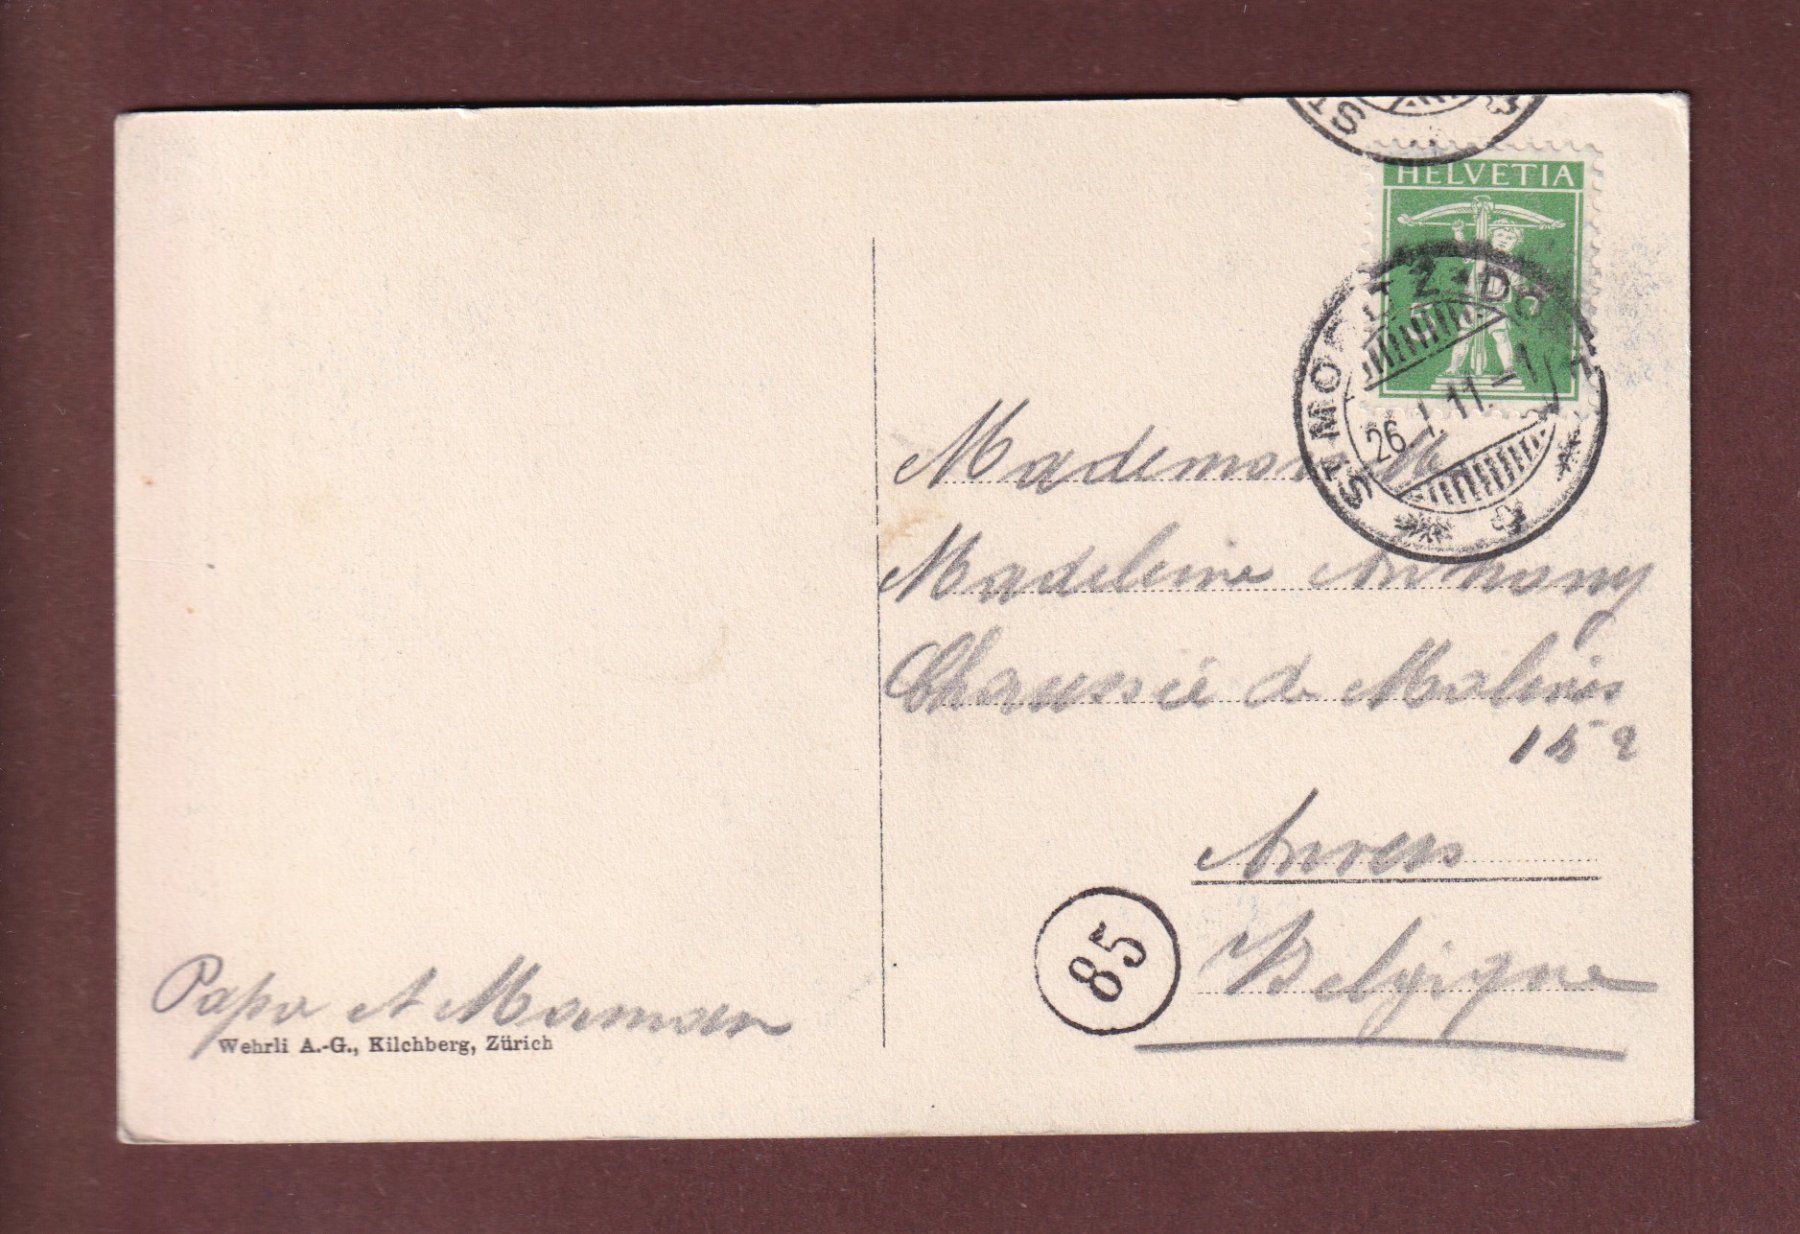 HELVETIA
ST. MORITZ-DORF
26. I. 11. -1
Mademoiselle
Madeleine Anthony
Chaussée de Malines
152
Anvers
Belgique
85
Papa et Maman
Wehrli A.-G., Kilchberg, Zürich